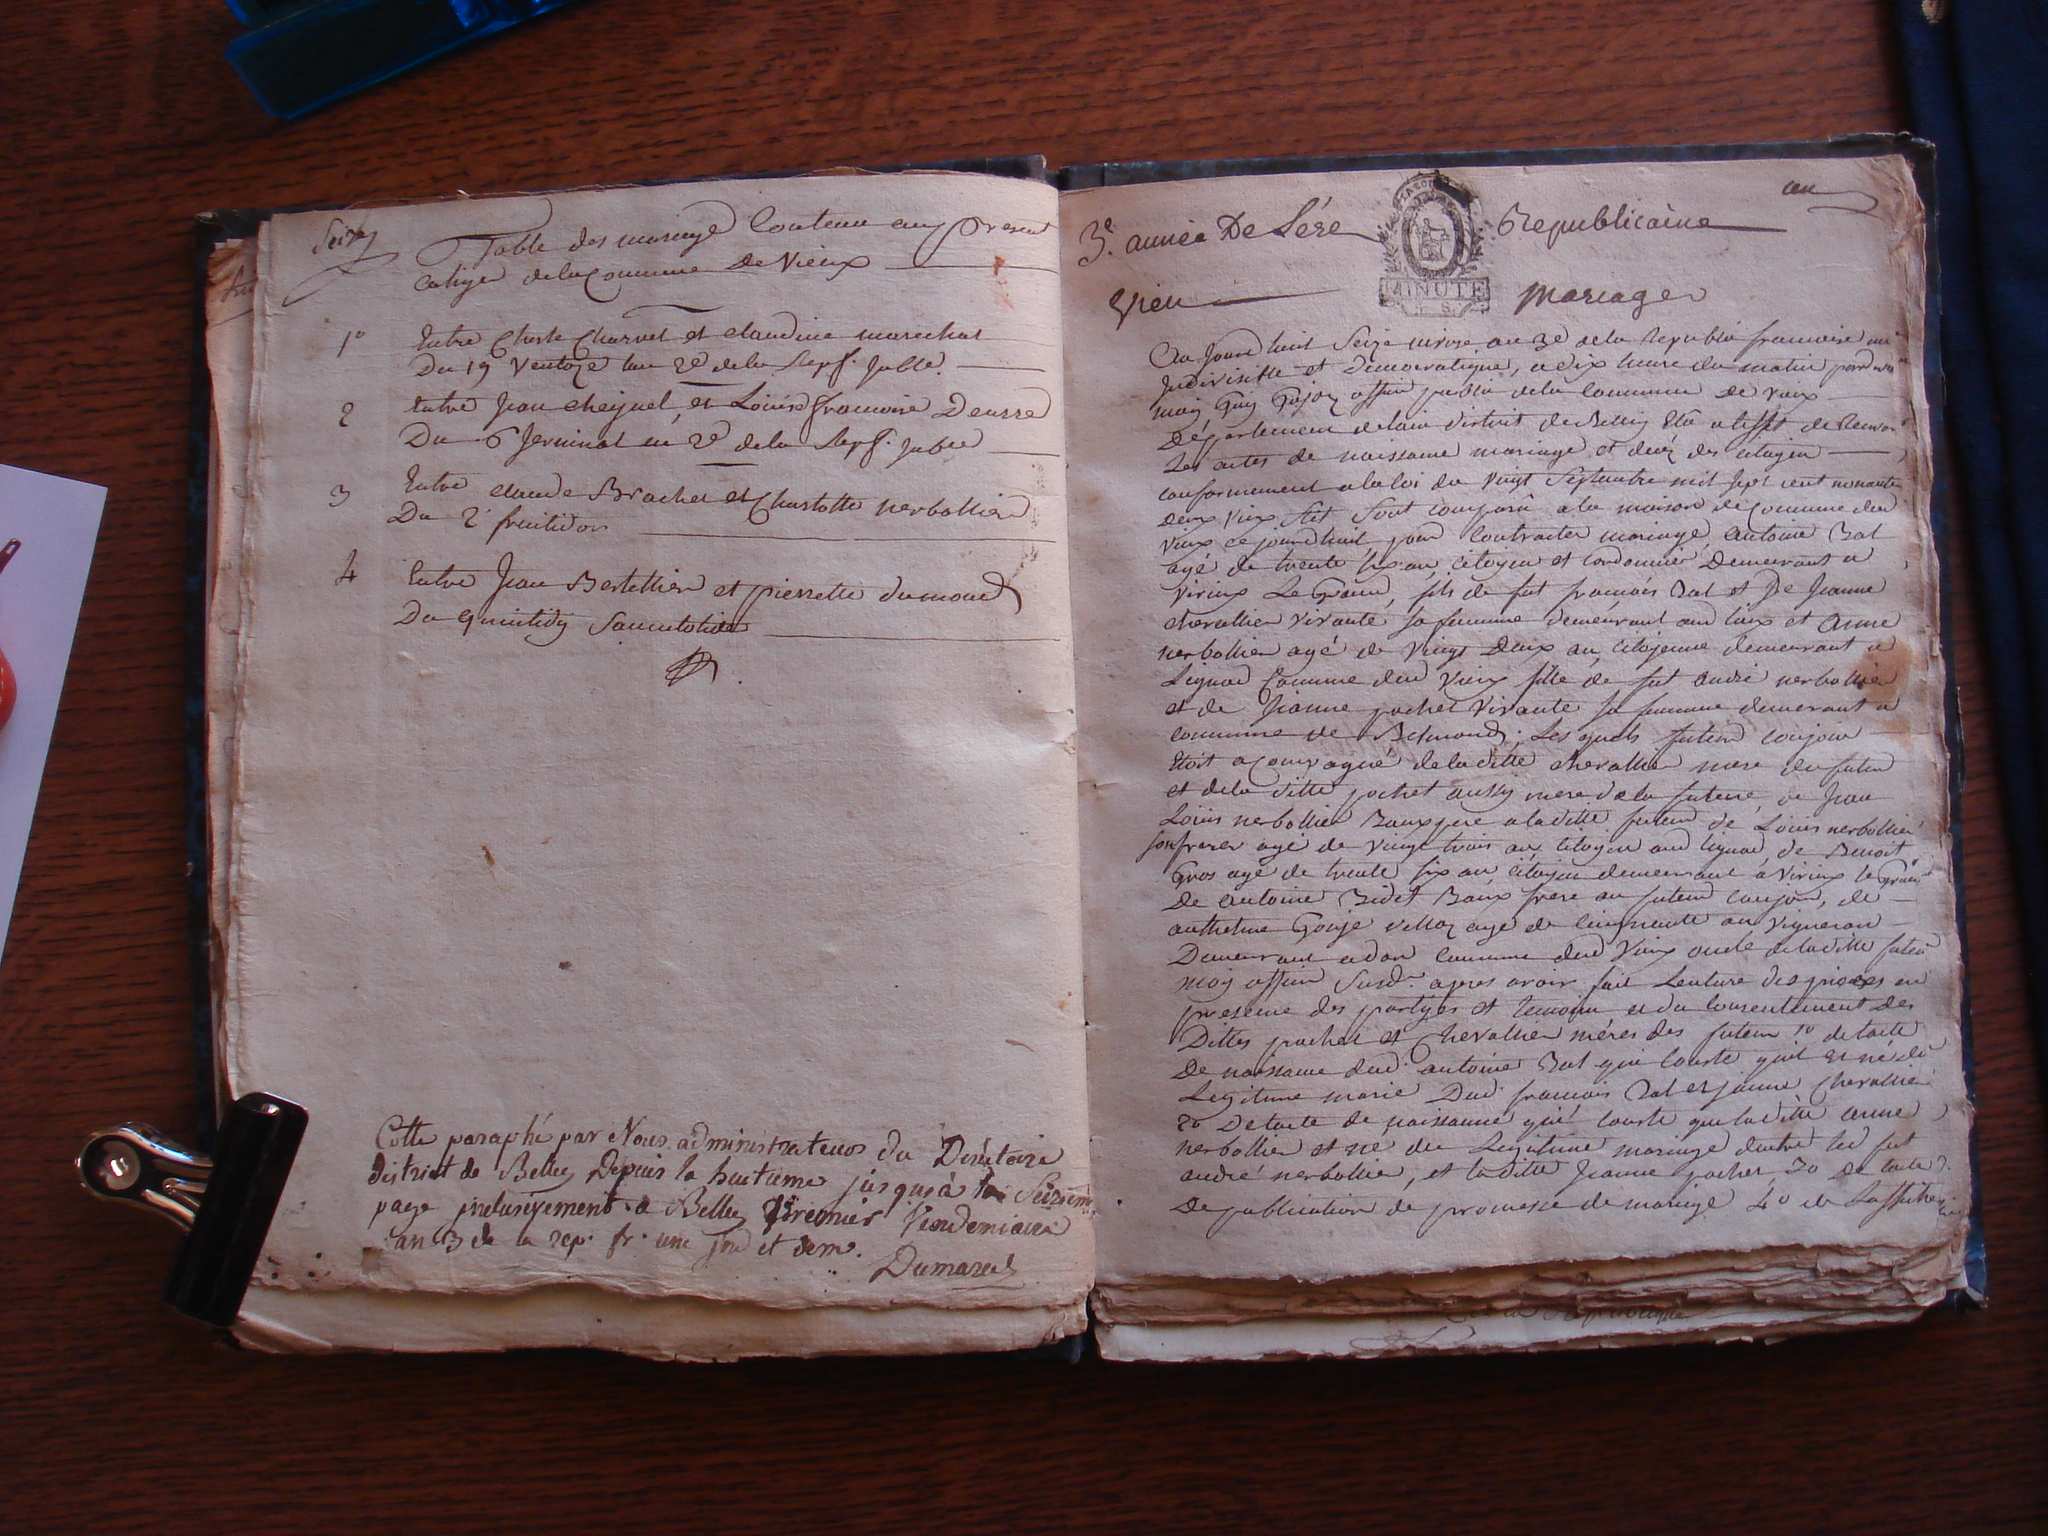 Seize
Table des mariage Contenu au present
cahyer de la Commune de Vieux
1º Entre Charle Charvet et claudine marechal
Du 19 Ventoze lan 2e de la Rep f.
2 Entre Jean et Louise francoise
Du 6 Jerminal an 2e de la Rep f.
3 Entre claude Brachet et Charlotte nerbollier
Du 2 fruitidor
4 Entre Jean Bertellier et pierrette dumond
Du quintidy
Cotté paraphé par Nous administrateurs du Diréctoire
district de Belley Depuis la huitieme jusqu'à la Seizieme
page inclusivement a Belley Premier Vendemiaire
an 3 de la rep. fr. une et dem.
Dumarest
3e. année De L'ére Republicaine
un
MINUTE
Vieu Mariage
Au Jourd huit Seize nivose an 3e de la republi francaise un
Indivisible et democratique, a dix heure du matin pard
moy Guy officier public de la Commune de Vieux
Département de lain district de Belley Elu a leffet de
Les actes de naissance mariage et decéz des citoyen
conformement a la loi du Vingt Septembre mil sept cent nonante
deux Vieux Stil Sont comparû a la maison de Commune du
Vieux ce jourdhuit pour Contracter mariage Antoine Bal
agé de trente six an, citoyen et Cordonnier Demeurant a
Virieux Le Grand, fils de fut francois Bal et De Jeanne
chevallier vivante sa femme demeurant aud lieux et Anne
nerbollier agé de Vingt Deux an, citoyenne demeurant a
Lignod Commune dud Vieux fille de fut André nerbollier
et de Jeanne pochet Vivante sa femme demeurant a
commune de Belmond; Les quels futeur conjoin
Etoit acompagné de la ditte chevallier mere du futeur
et de la ditte pochet aussy mere de la futeure, de Jean
Louis nerbollier a la ditte futeur de Louis nerbollier
son frerer agé de vingt trois an, citoyen aud lignod, de Benoit
Gros agé de trente six an, citoyen demeurant a Virieux le Grand
De antoine frere au futeur conjoin, de
anthelme agé de cinquante an Vigneron
Demeurant a don Commune dud Vieux oncle de la ditte futeu
moy officier Susd. apres avoir fait Lecture des pieces en
presence des partyes et temoin et du Consentement des
Dittes pochet et Chevallier méres des futeur 1º de lacte
De naissance dud. antoine Bal qui Conste quil es né du
Legitime marié Dud francois Bal et jeanne Chevallier
2º De lacte de naissance qui conste que la ditte Anne
nerbollier et né du Legitime mariage dentre led fut
andré nerbollier, et la ditte Jeanne pochet, 3º De lacte
De publication de promesse de mariage 4º de